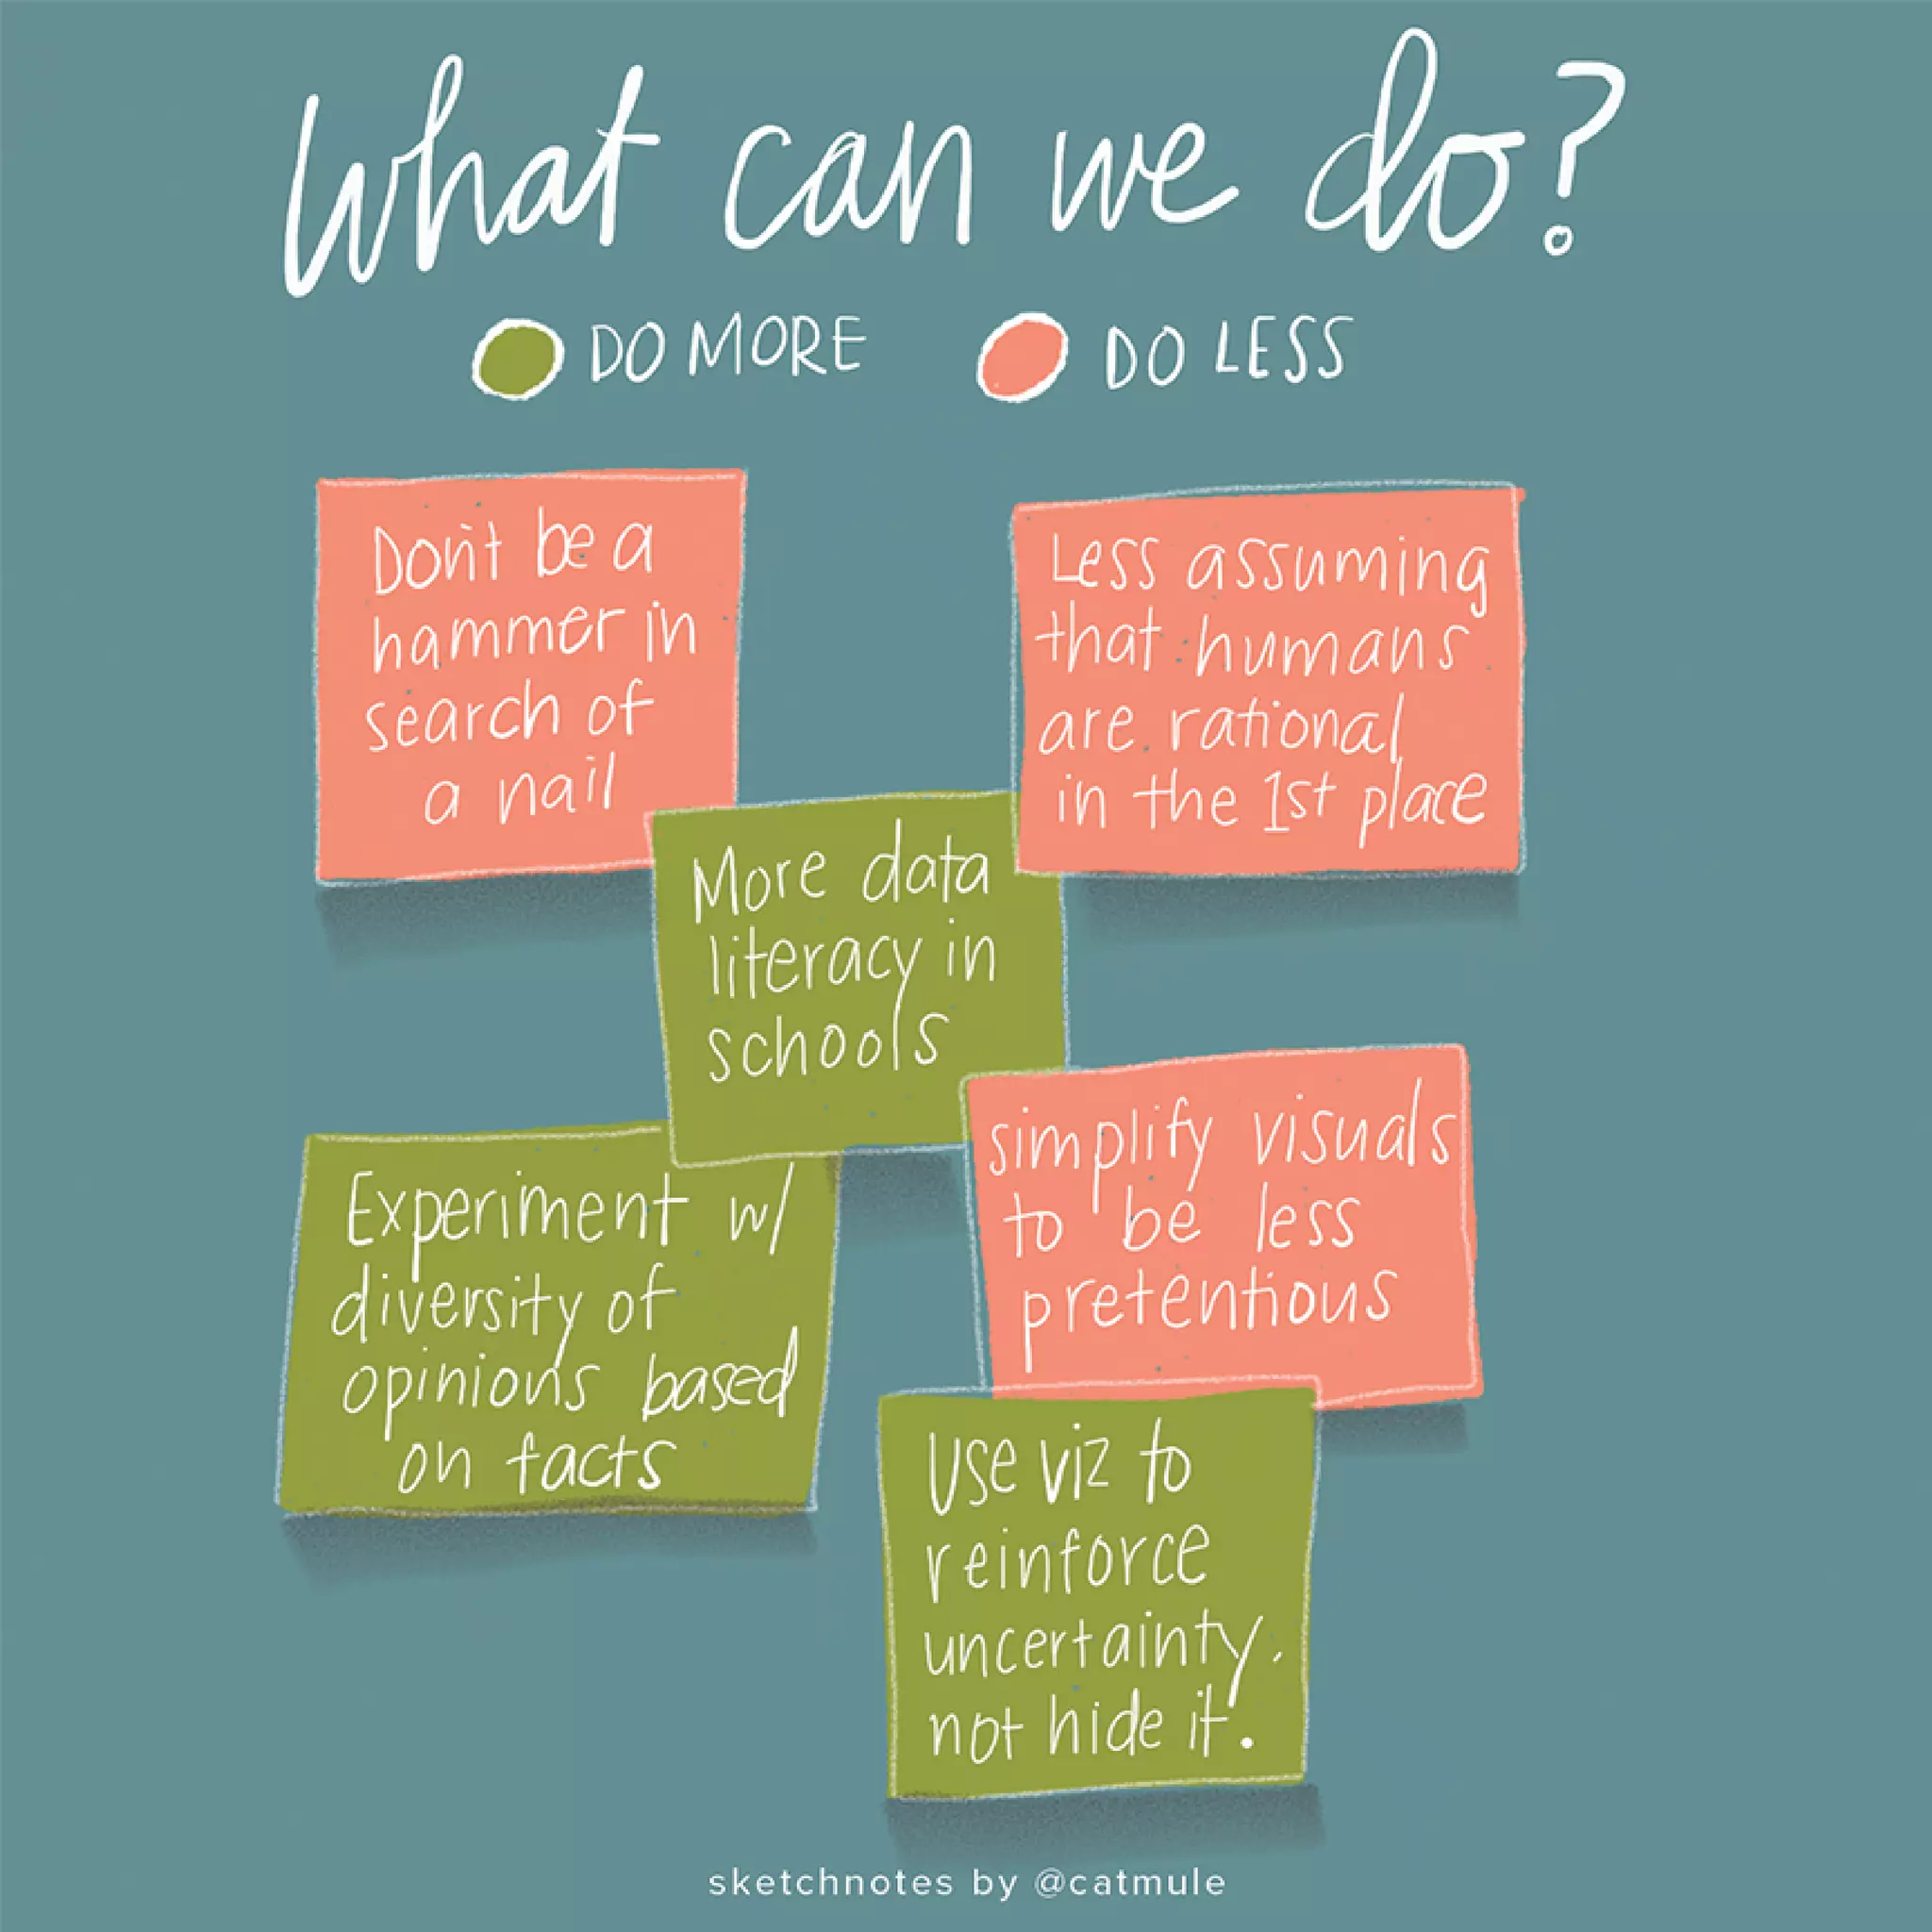 What can we do?
DO MORE
DO LESS
Don't be a
hammer in
search of
a nail
Less assuming
that humans
are rational
in the 1st place
More data
literacy in
schools
simplify visuals
to be less
pretentious
Experiment w/
diversity of
opinions based
on facts
Use viz to
reinforce
uncertainty,
not hide it.
sketchnotes by @catmule